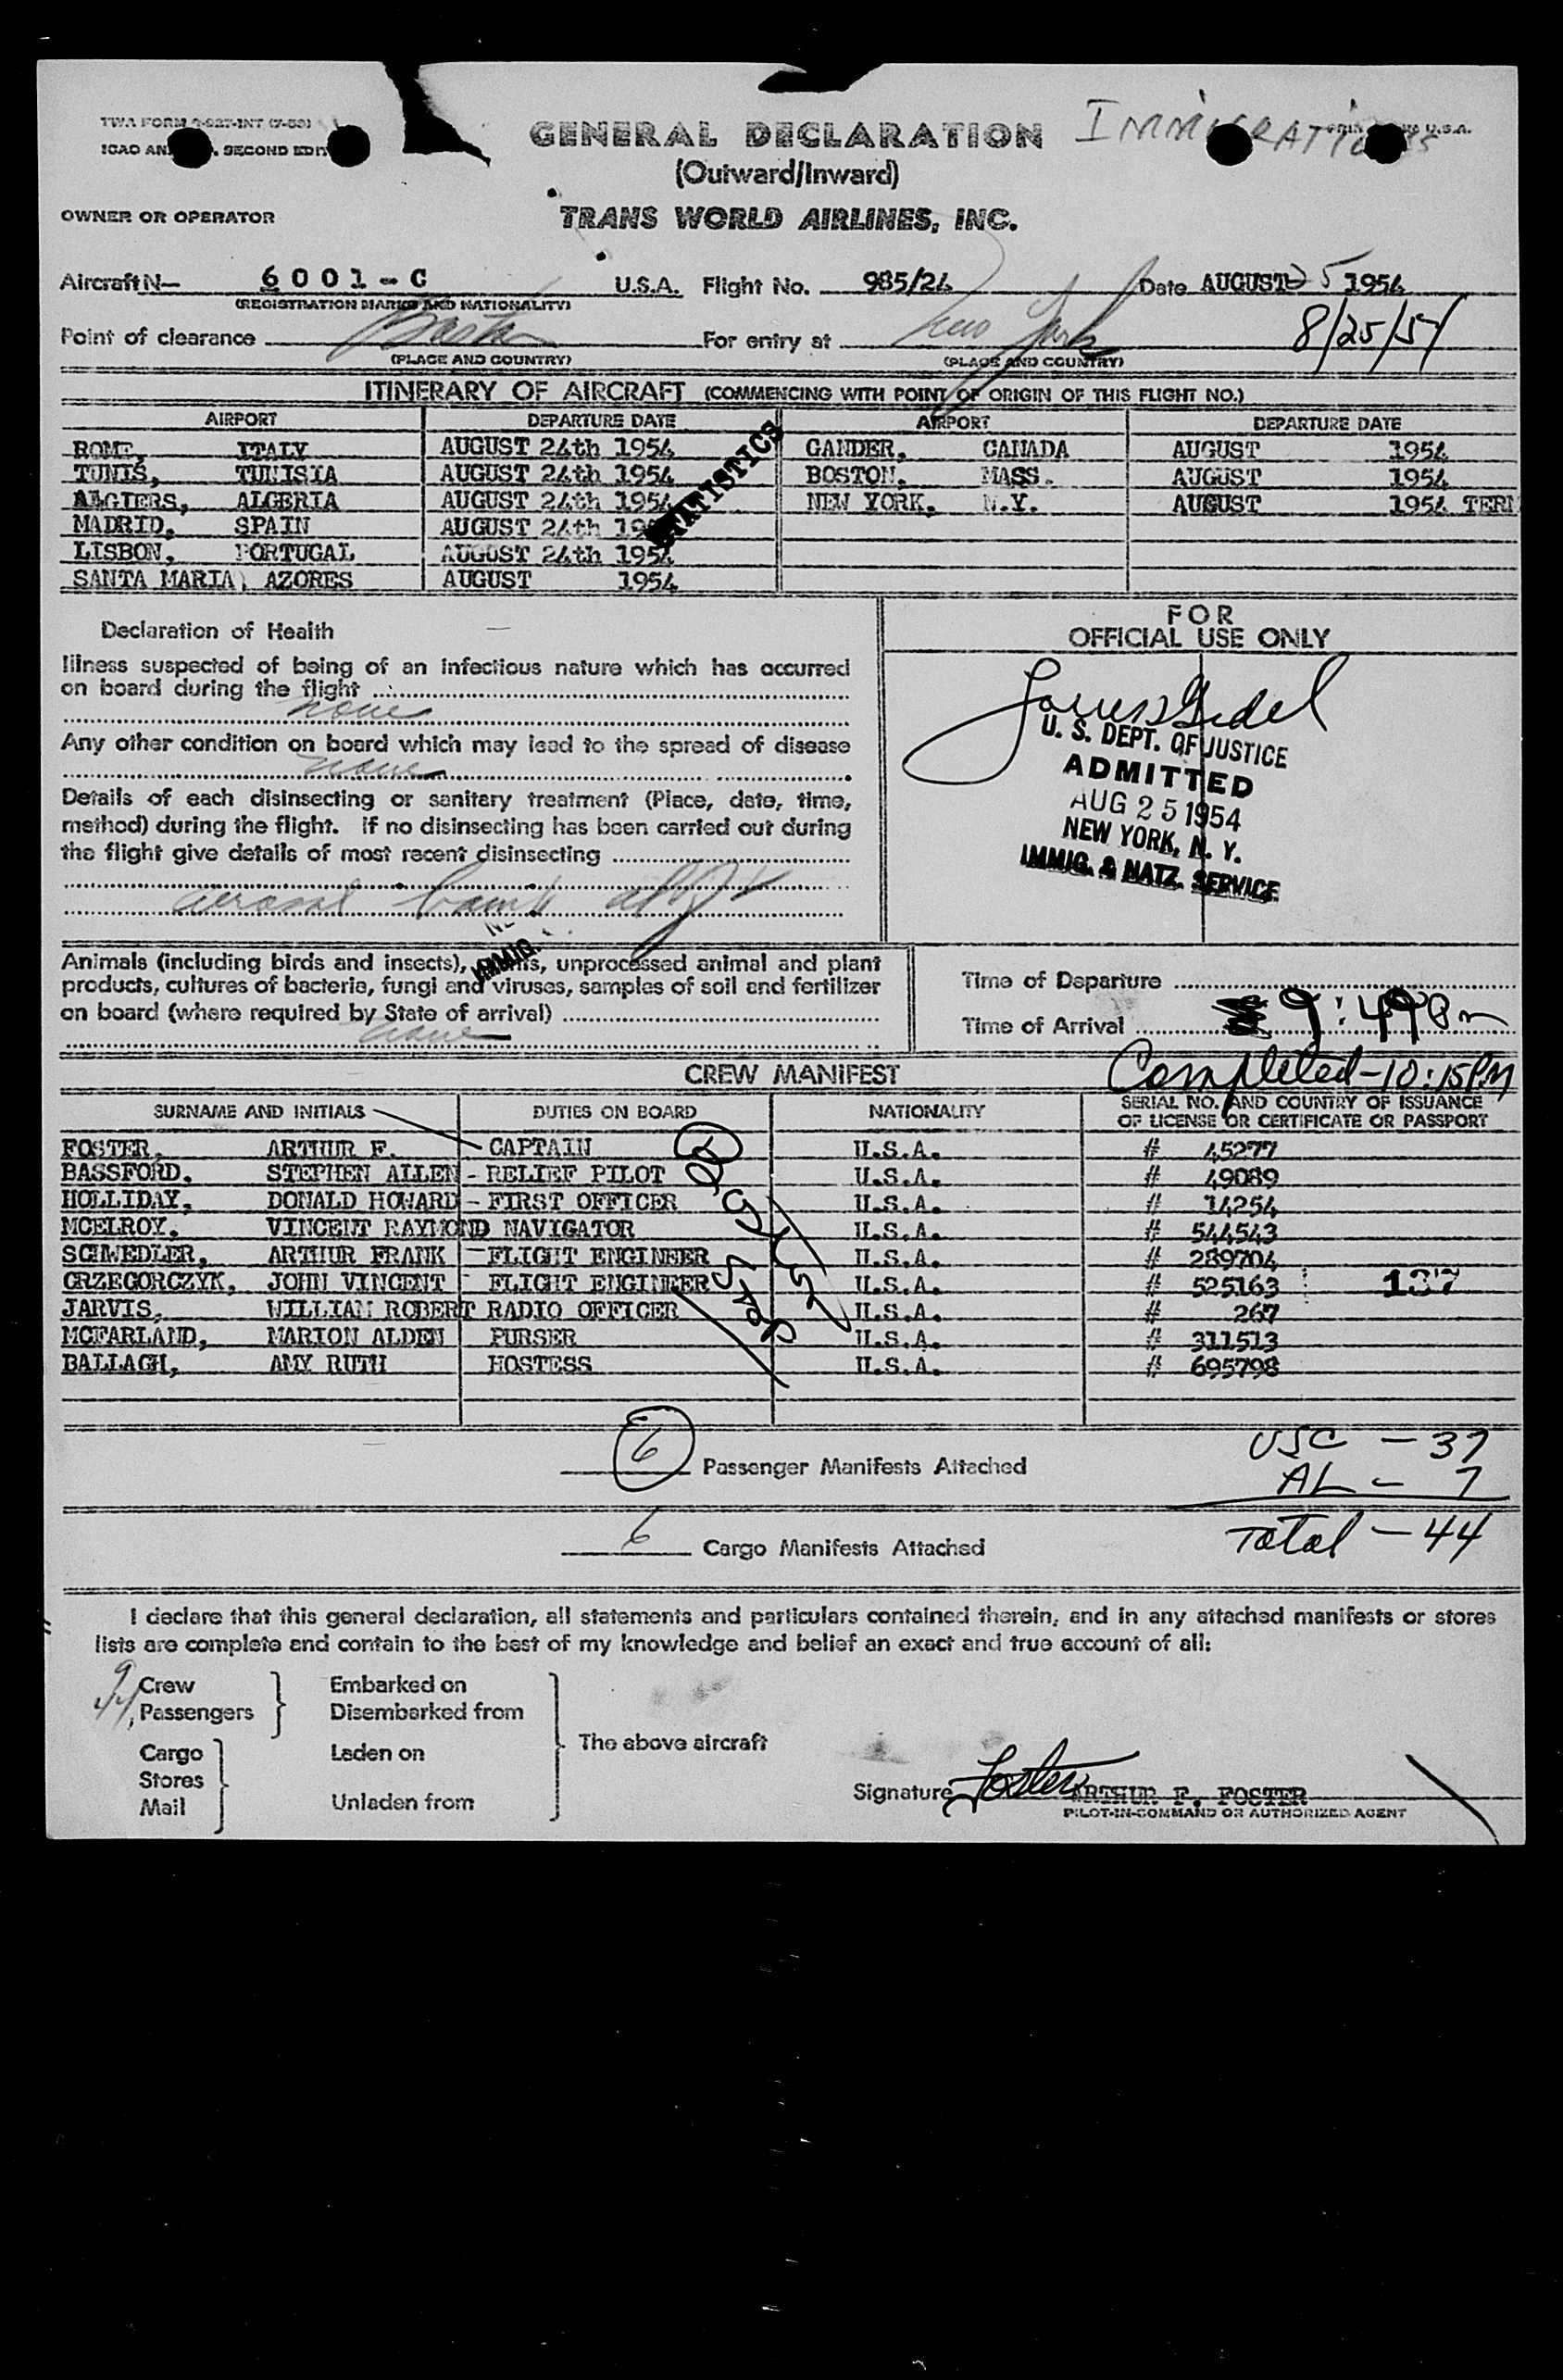 TWA FORM
GENERAL DECLARATION IMMIGRATION
ICAO SECOND
(Outward/Inward)
OWNER OR OPERATOR TRANS WORLD AIRLINES, INC.
Aircraft N— 6001-C U.S.A. Flight No. 985/24 Date AUGUST 25 1954
(REGISTRATION MARKS AND NATIONALITY)
Point of clearance Boston For entry at New York 8/25/54
(PLACE AND COUNTRY) (PLACE AND COUNTRY)
ITINERARY OF AIRCRAFT (COMMENCING WITH POINT OF ORIGIN OF THIS FLIGHT NO.)
AIRPORT DEPARTURE DATE AIRPORT DEPARTURE DATE
ROME, ITALY AUGUST 24th 1954 GANDER, CANADA AUGUST 1954
TUNIS, TUNISIA AUGUST 24th 1954 BOSTON, MASS. AUGUST 1954
ALGIERS, ALGERIA AUGUST 24th 1954 NEW YORK, N.Y. AUGUST 1954 TERM
MADRID, SPAIN AUGUST 24th
LISBON, PORTUGAL AUGUST 24th 1954
SANTA MARIA, AZORES AUGUST 1954
STATISTICS
Declaration of Health
Illness suspected of being of an infectious nature which has occurred
on board during the flight
none
Any other condition on board which may lead to the spread of disease
none
Details of each disinsecting or sanitary treatment (Place, date, time,
method) during the flight. If no disinsecting has been carried out during
the flight give details of most recent disinsecting
aerosol bomb
FOR
OFFICIAL USE ONLY
U. S. DEPT. OF JUSTICE
ADMITTED
AUG 25 1954
NEW YORK, N. Y.
IMMIG. & NATZ. SERVICE
IMMIG.
Animals (including birds and insects), plants, unprocessed animal and plant
products, cultures of bacteria, fungi and viruses, samples of soil and fertilizer
on board (where required by State of arrival)
none
Time of Departure
Time of Arrival 9:49 Pm
Completed - 10:15 PM
CREW MANIFEST
SURNAME AND INITIALS DUTIES ON BOARD NATIONALITY SERIAL NO. AND COUNTRY OF ISSUANCE
OF LICENSE OR CERTIFICATE OR PASSPORT
FOSTER, ARTHUR F. - CAPTAIN U.S.A. # 45277
BASSFORD, STEPHEN ALLEN - RELIEF PILOT U.S.A. # 49089
HOLLIDAY, DONALD HOWARD - FIRST OFFICER U.S.A. # 14254
MCELROY, VINCENT RAYMOND NAVIGATOR U.S.A. # 544543
SCHWEDLER, ARTHUR FRANK - FLIGHT ENGINEER U.S.A. # 289704
GRZEGORCZYK, JOHN VINCENT - FLIGHT ENGINEER U.S.A. # 525163 137
JARVIS, WILLIAM ROBERT RADIO OFFICER U.S.A. # 267
MCFARLAND, MARION ALDEN PURSER U.S.A. # 311513
BALLAGH, AMY RUTH HOSTESS U.S.A. # 695798
6 Passenger Manifests Attached
USC - 37
AL - 7
Total - 44
6 Cargo Manifests Attached
I declare that this general declaration, all statements and particulars contained therein, and in any attached manifests or stores
lists are complete and contain to the best of my knowledge and belief an exact and true account of all:
9 Crew Embarked on
44 Passengers Disembarked from
The above aircraft
Cargo Laden on
Stores
Mail Unladen from
Signature Foster ARTHUR F. FOSTER
PILOT-IN-COMMAND OR AUTHORIZED AGENT